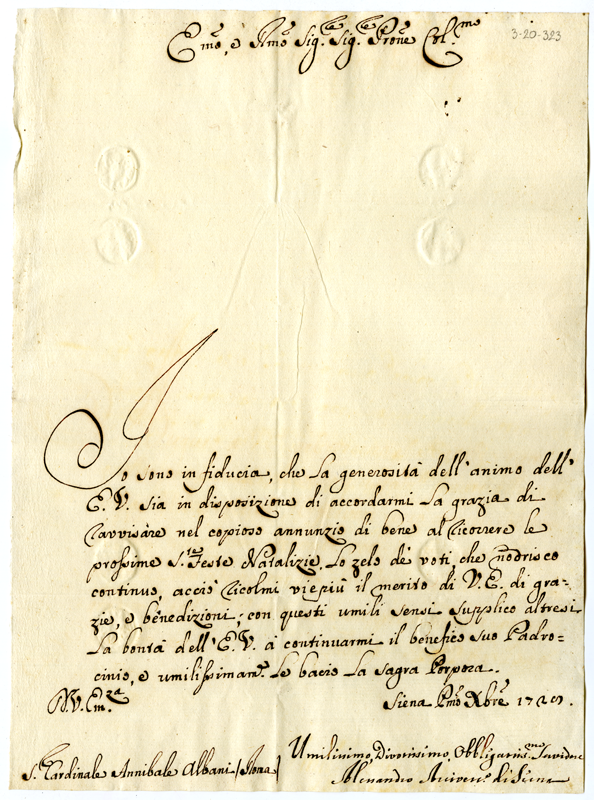 Emo, e Rmo Sig.re Sig.re Prone Col.mo
3-20-323
Io sono in fiducia, che la generosità dell'animo dell'
E. V. sia in disposizione di accordarmi la grazia di
ravvisare nel copioso annunzio di bene al ricorrere le
prossime S.te Feste Natalizie, lo zelo de' voti, che nodrisco
continuo, acciò ricolmi viepiù il merito di V. E. di gra=
zie, e benedizioni; con questi umili sensi supplico altresi
la bontà dell'E. V. à continuarmi il benefico suo Padro=
cinio, e umilissimam.e le bacio la sagra Porpora.
D. V. Em.za
Siena Pmo Xbre
Umilissimo, Divotissimo, Obbligatis.mo
S. Cardinale Annibale Albani / Roma /
Alessandro Arcives.o di Siena